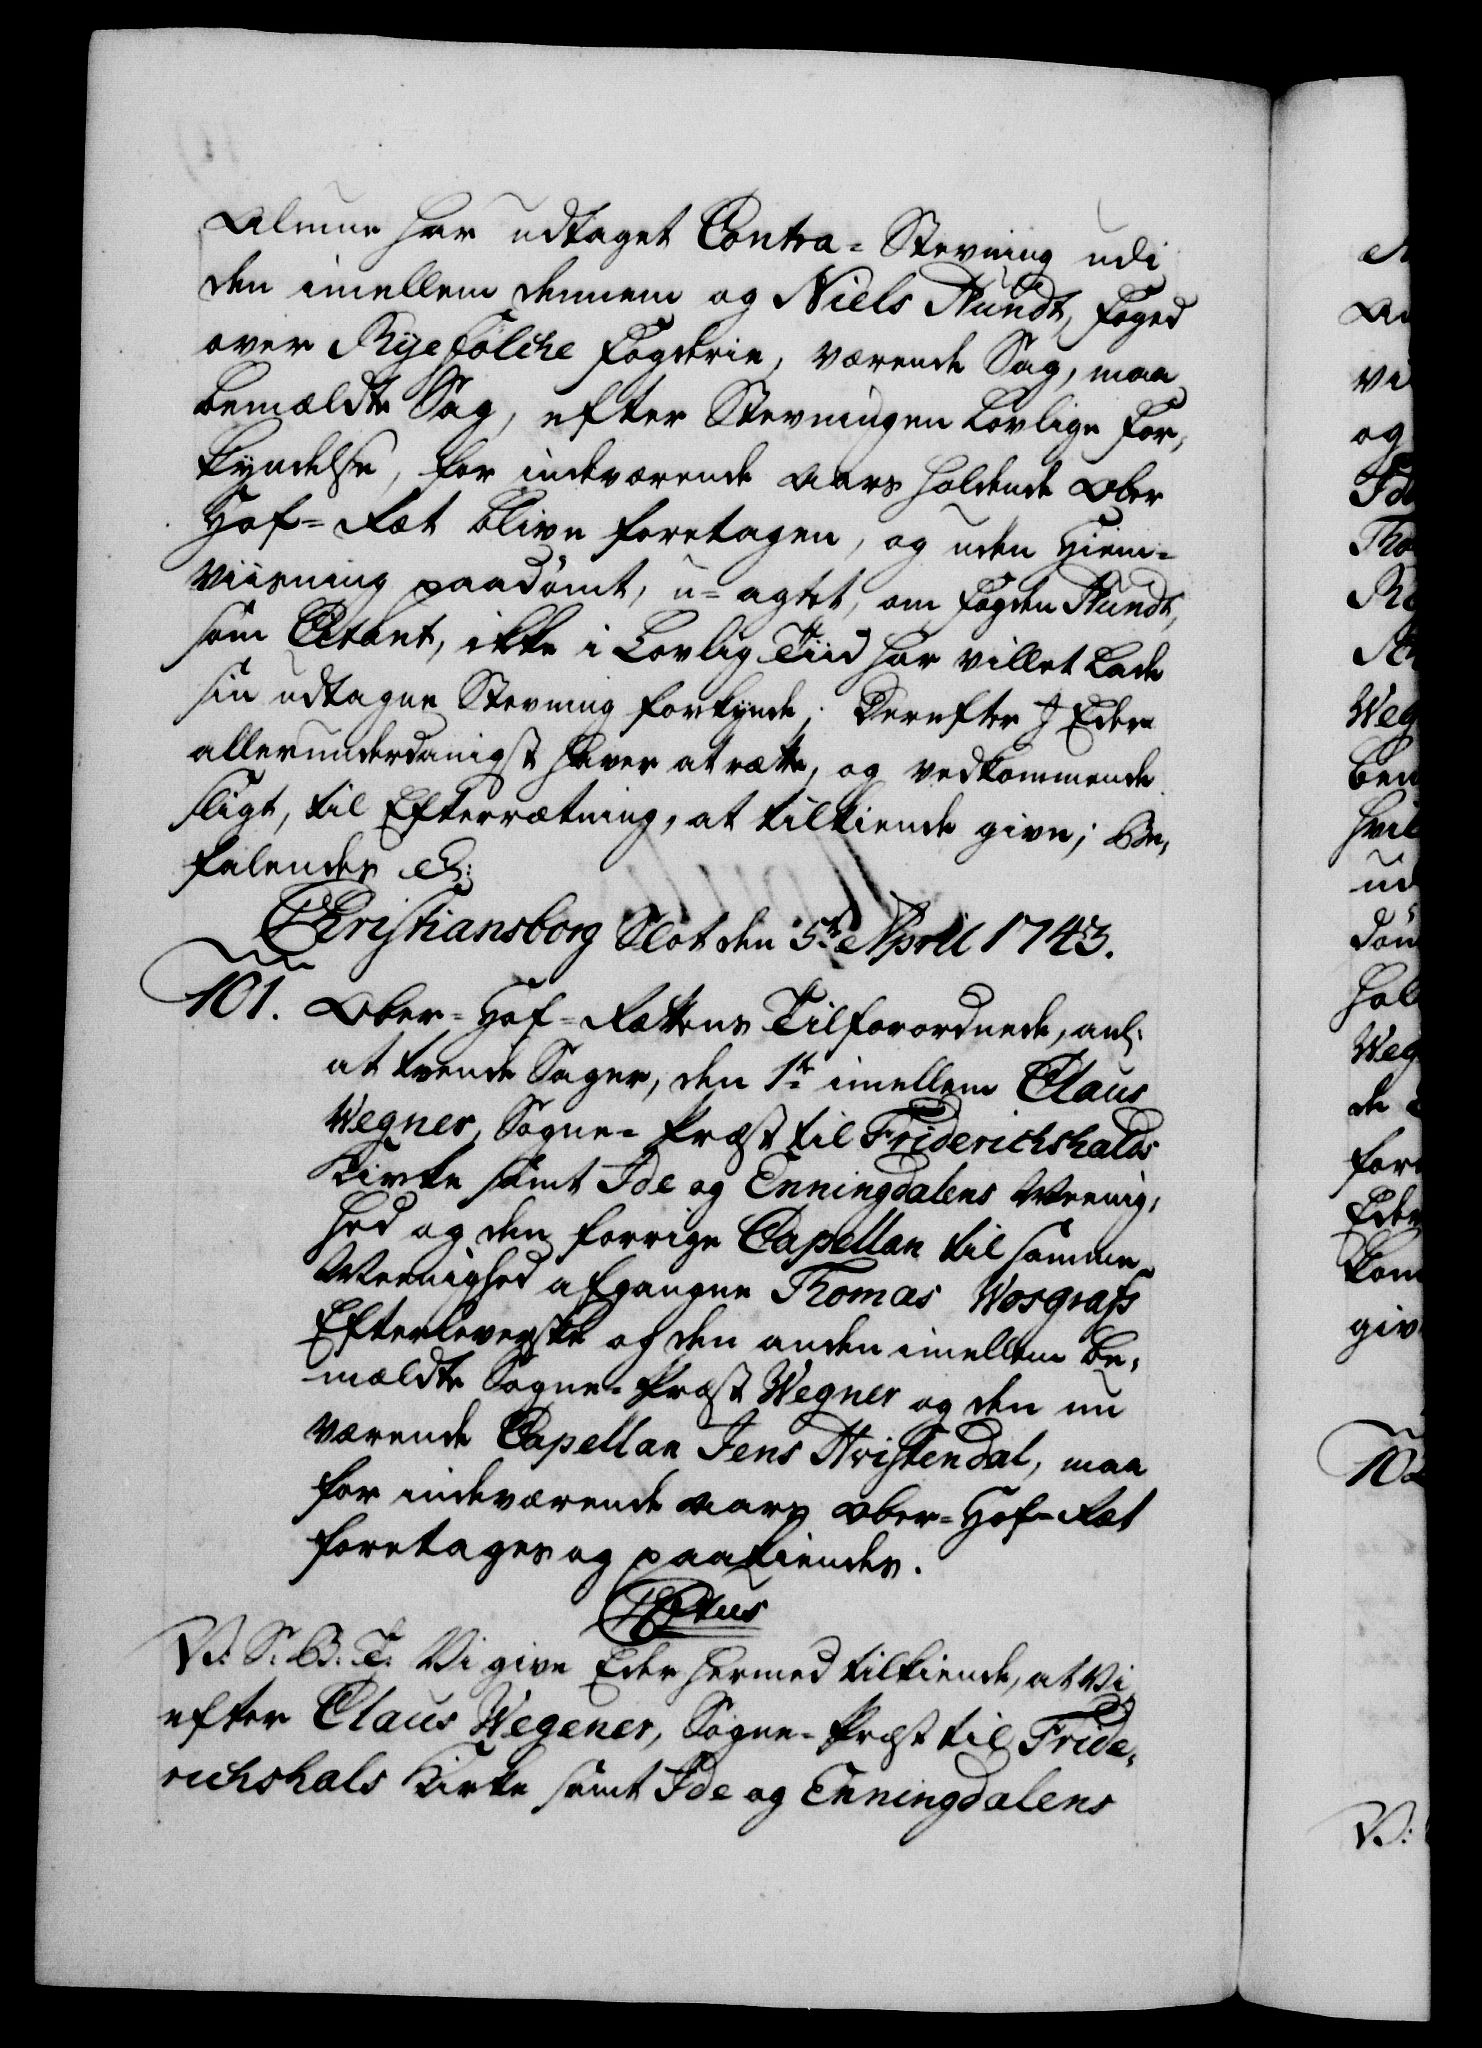 Almue har udtaget Contra-Stevning udi
den imellem dennem og Niels Hundt, Foged
over Ryefylche Fogderie, værende Sag, maa
bemældte Sag, efter Stevningen Lovlige For-
kyndelse, for indeværende Aars holdende Ober
Hof-Ræt blive foretagen, og uden Hiem-
viisning paadømt, u-agtet, om Fogden Hundt,
som Citant, ikke i Lovlig Tiid har villet Lade
sin udtagne Stevning forkynde; Derefter I Eder
allerunderdanigst haver at rætte, og vedkommende
sligt, til Efterrætning, at tilkiende give; Be-
falendes &:
Christiansborg Slot den 5te April 1743.
101. Ober-Hof-Rettens Tilforordnede, anl:
at tvende Sager, den 1te imellem Claus
Wegner, Sogne-Præst til Friderichshalds
Kirke samt Ide og Enningdalens Meenig-
hed og den forrige Capellan til samme
Meenighed afgangne Thomas Wosgrafs
Efterleverske og den anden imellem be-
mældte Sogne-Præst Wegner og den nu
værende Capellan Jens Hvistendal, maa
for indeværende Aars Ober-Hof-Ræt
foretages og paakiendes.
V: S: B: T: Vi give Eder hermed tilkiende, at Vi
efter Claus Wegener, Sogne-Præst til Fride-
richshals Kirke samt Ide og Enningdalens